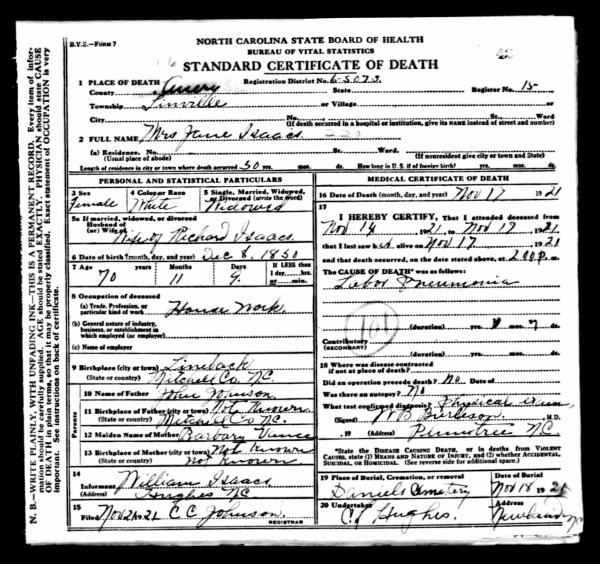 B.V.S.—FORM 7
NORTH CAROLINA STATE BOARD OF HEALTH
BUREAU OF VITAL STATISTICS
STANDARD CERTIFICATE OF DEATH
1 PLACE OF DEATH Registration District No. 6-5073. Register No. 15-
County Avery State
Township Linville or Village or
City No. St. Ward
(If death occurred in a hospital or institution, give its NAME instead of street and number)
2 FULL NAME Mrs Jane Isaacs
(a) Residence. No. St. Ward.
(Usual place of abode) (If nonresident give city or town and State)
Length of residence in city or town where death occurred 50 yrs. mos. ds. How long in U. S. if of foreign birth? yrs. mos. ds.
PERSONAL AND STATISTICAL PARTICULARS
3 SEX Female
4 Color or Race White
5 Single, Married, Widowed, or Divorced (write the word) Widowed
5a If married, widowed, or divorced
Husband of
(or) Wife of Wife of Richard Isaacs
6 Date of birth (month, day, and year) Dec 8, 1850
7 Age 70 Years 11 Months 9 Days If LESS than
1 day, hrs.
or min.
8 Occupation of deceased
(a) Trade, Profession, or
particular kind of work House Work
(b) General nature of industry,
business, or establishment in
which employed (or employer)
(c) Name of employer
9 Birthplace (city or town) Lineback
(State or country) Mitchell Co, N.C.
Parents
10 Name of Father John Johnson
11 Birthplace of Father (city or town) Not Known
(State or country) Mitchell Co N.C.
12 Maiden Name of Mother Barbary Vance
13 Birthplace of Mother (city or town) Not Known
(State or country) Not Known
14
Informant William Isaacs
(Address) Hughes NC
15
Filed Nov 21 1921 C C Johnson
REGISTRAR
MEDICAL CERTIFICATE OF DEATH
16 Date of Death (month, day, and year) Nov 17 1921
17
I HEREBY CERTIFY, That I attended deceased from
Nov 14 1921, to Nov 17, 1921
that I last saw h alive on Nov 17 1921
and that death occurred, on the date stated above, at 2:00 P.m.
The CAUSE OF DEATH* was as follows:
Lobar Pneumonia
101
(duration) yrs. mos. 7 ds.
Contributory
(SECONDARY)
(duration) yrs. mos. ds.
18 Where was disease contracted
if not at place of death?
Did an operation precede death? No Date of
Was there an autopsy? No
What test confirmed diagnosis? Physical Exam
(Signed) W B Burleson, M.D.
, 19 (Address) Plumtree N.C.
*State the DISEASE CAUSING DEATH, or in deaths from VIOLENT
CAUSES, state (1) MEANS AND NATURE OF INJURY, and (2) whether ACCIDENTAL,
SUICIDAL, or HOMICIDAL. (See reverse side for additional space.)
19 Place of Burial, Cremation, or removal Date of Burial
Daniels Cemetery Nov 18 1921
20 Undertaker Address
C J Hughes. Newland NC
N. B.—WRITE PLAINLY, WITH UNFADING INK—THIS IS A PERMANENT RECORD. Every item of infor-
mation should be carefully supplied. AGE should be stated EXACTLY. PHYSICIAN should state CAUSE
OF DEATH in plain terms, so that it may be properly classified. Exact statement of OCCUPATION is very
important. See instructions on back of certificate.